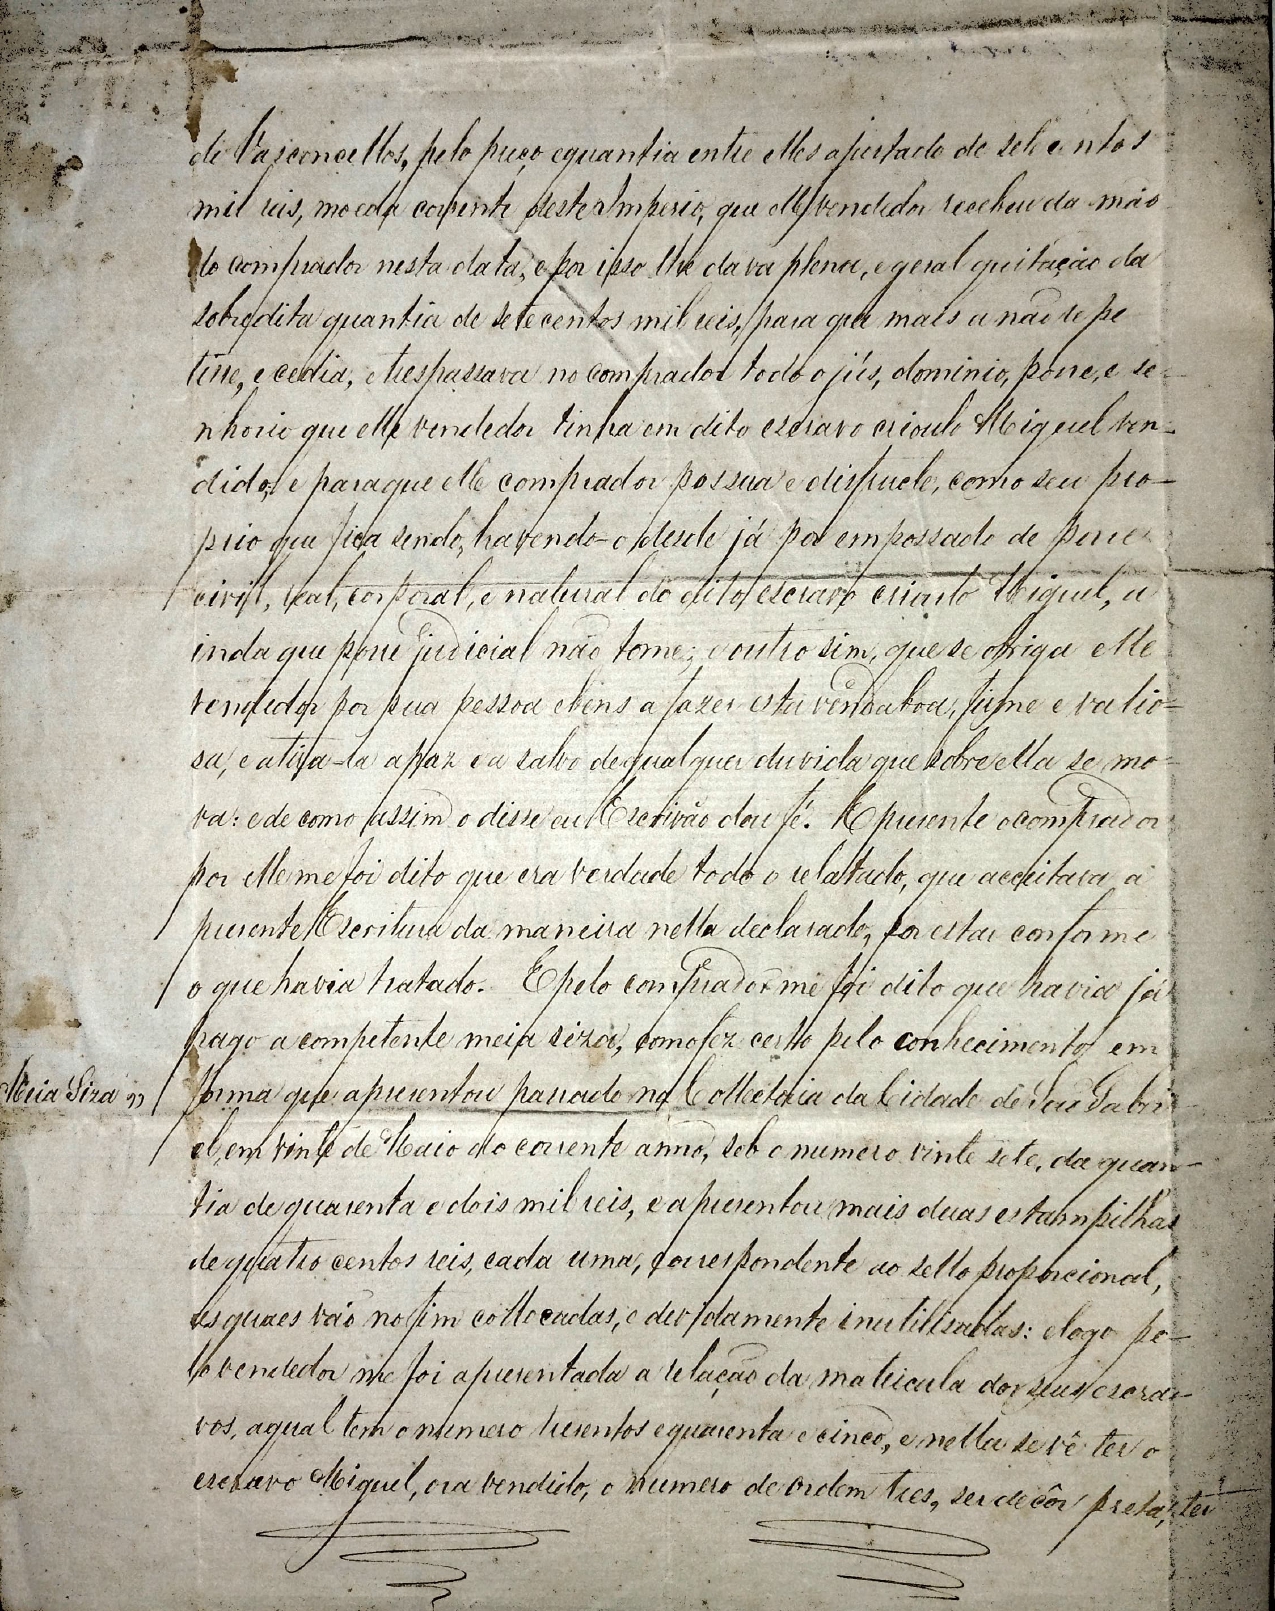 de Vasconcellos, pelo preço e quantia entre elles ajustado de setecentos
mil reis, moeda corrente deste Imperio, que elle vendedor recebeu da mão
do comprador nesta data, e por isso lhe dava plena, e geral quitação da
sobredita quantia de setecentos mil reis, para que mais a não repe
tisse, e cedia, e trespassava no comprador todo o jús, dominio, posse, e se-
nhorio que elle vendedor tinha em dito escravo crioulo Miguel ven-
dido, e para que elle comprador possua e disfructe, como seu pro-
prio que fica sendo, havendo-o desde já por empossado de posse
civil, real, corporal, e natural do dito escravo crioulo Miguel, a
inda que posse judicial não tome; e outro sim, que se obriga elle
vendedor por sua pessoa e bens a fazer esta venda boa, firme e valio-
sa, e a tira-la a paz e a salvo de qualquer duvida que sobre ella se mo-
va: e de como assim o disse eu Escrivão dou fé. E presente o comprador
por elle me foi dito que era verdade todo o relatado, que acceitava a
presente Escritura da maneira nella declarado, por estar conforme
o que havia tratado. E pelo comprador me foi dito que havia já
pago a competente meia siza, como fez certo pelo conhecimento em
Meia Siza "
forma que apresentou passado na Collectoria da Cidade de São Gabri-
el, em vinte de Maio do corrente anno, sob o numero vinte sete, da quan-
tia de quarenta e dois mil reis, e apresentou mais duas estampilhas
de quatro centos reis, cada uma, correspondente ao sello proporcional,
as quaes vão no fim collocadas, e devidamente inutilisadas: e logo pe-
lo vendedor me foi apresentada a relação da matricula dos seus escra-
vos, a qual tem o numero tresentos e quarenta e cinco, e nella se vê ter o
escravo Miguel, ora vendido, o numero de ordem tres, ser de côr preta, ter